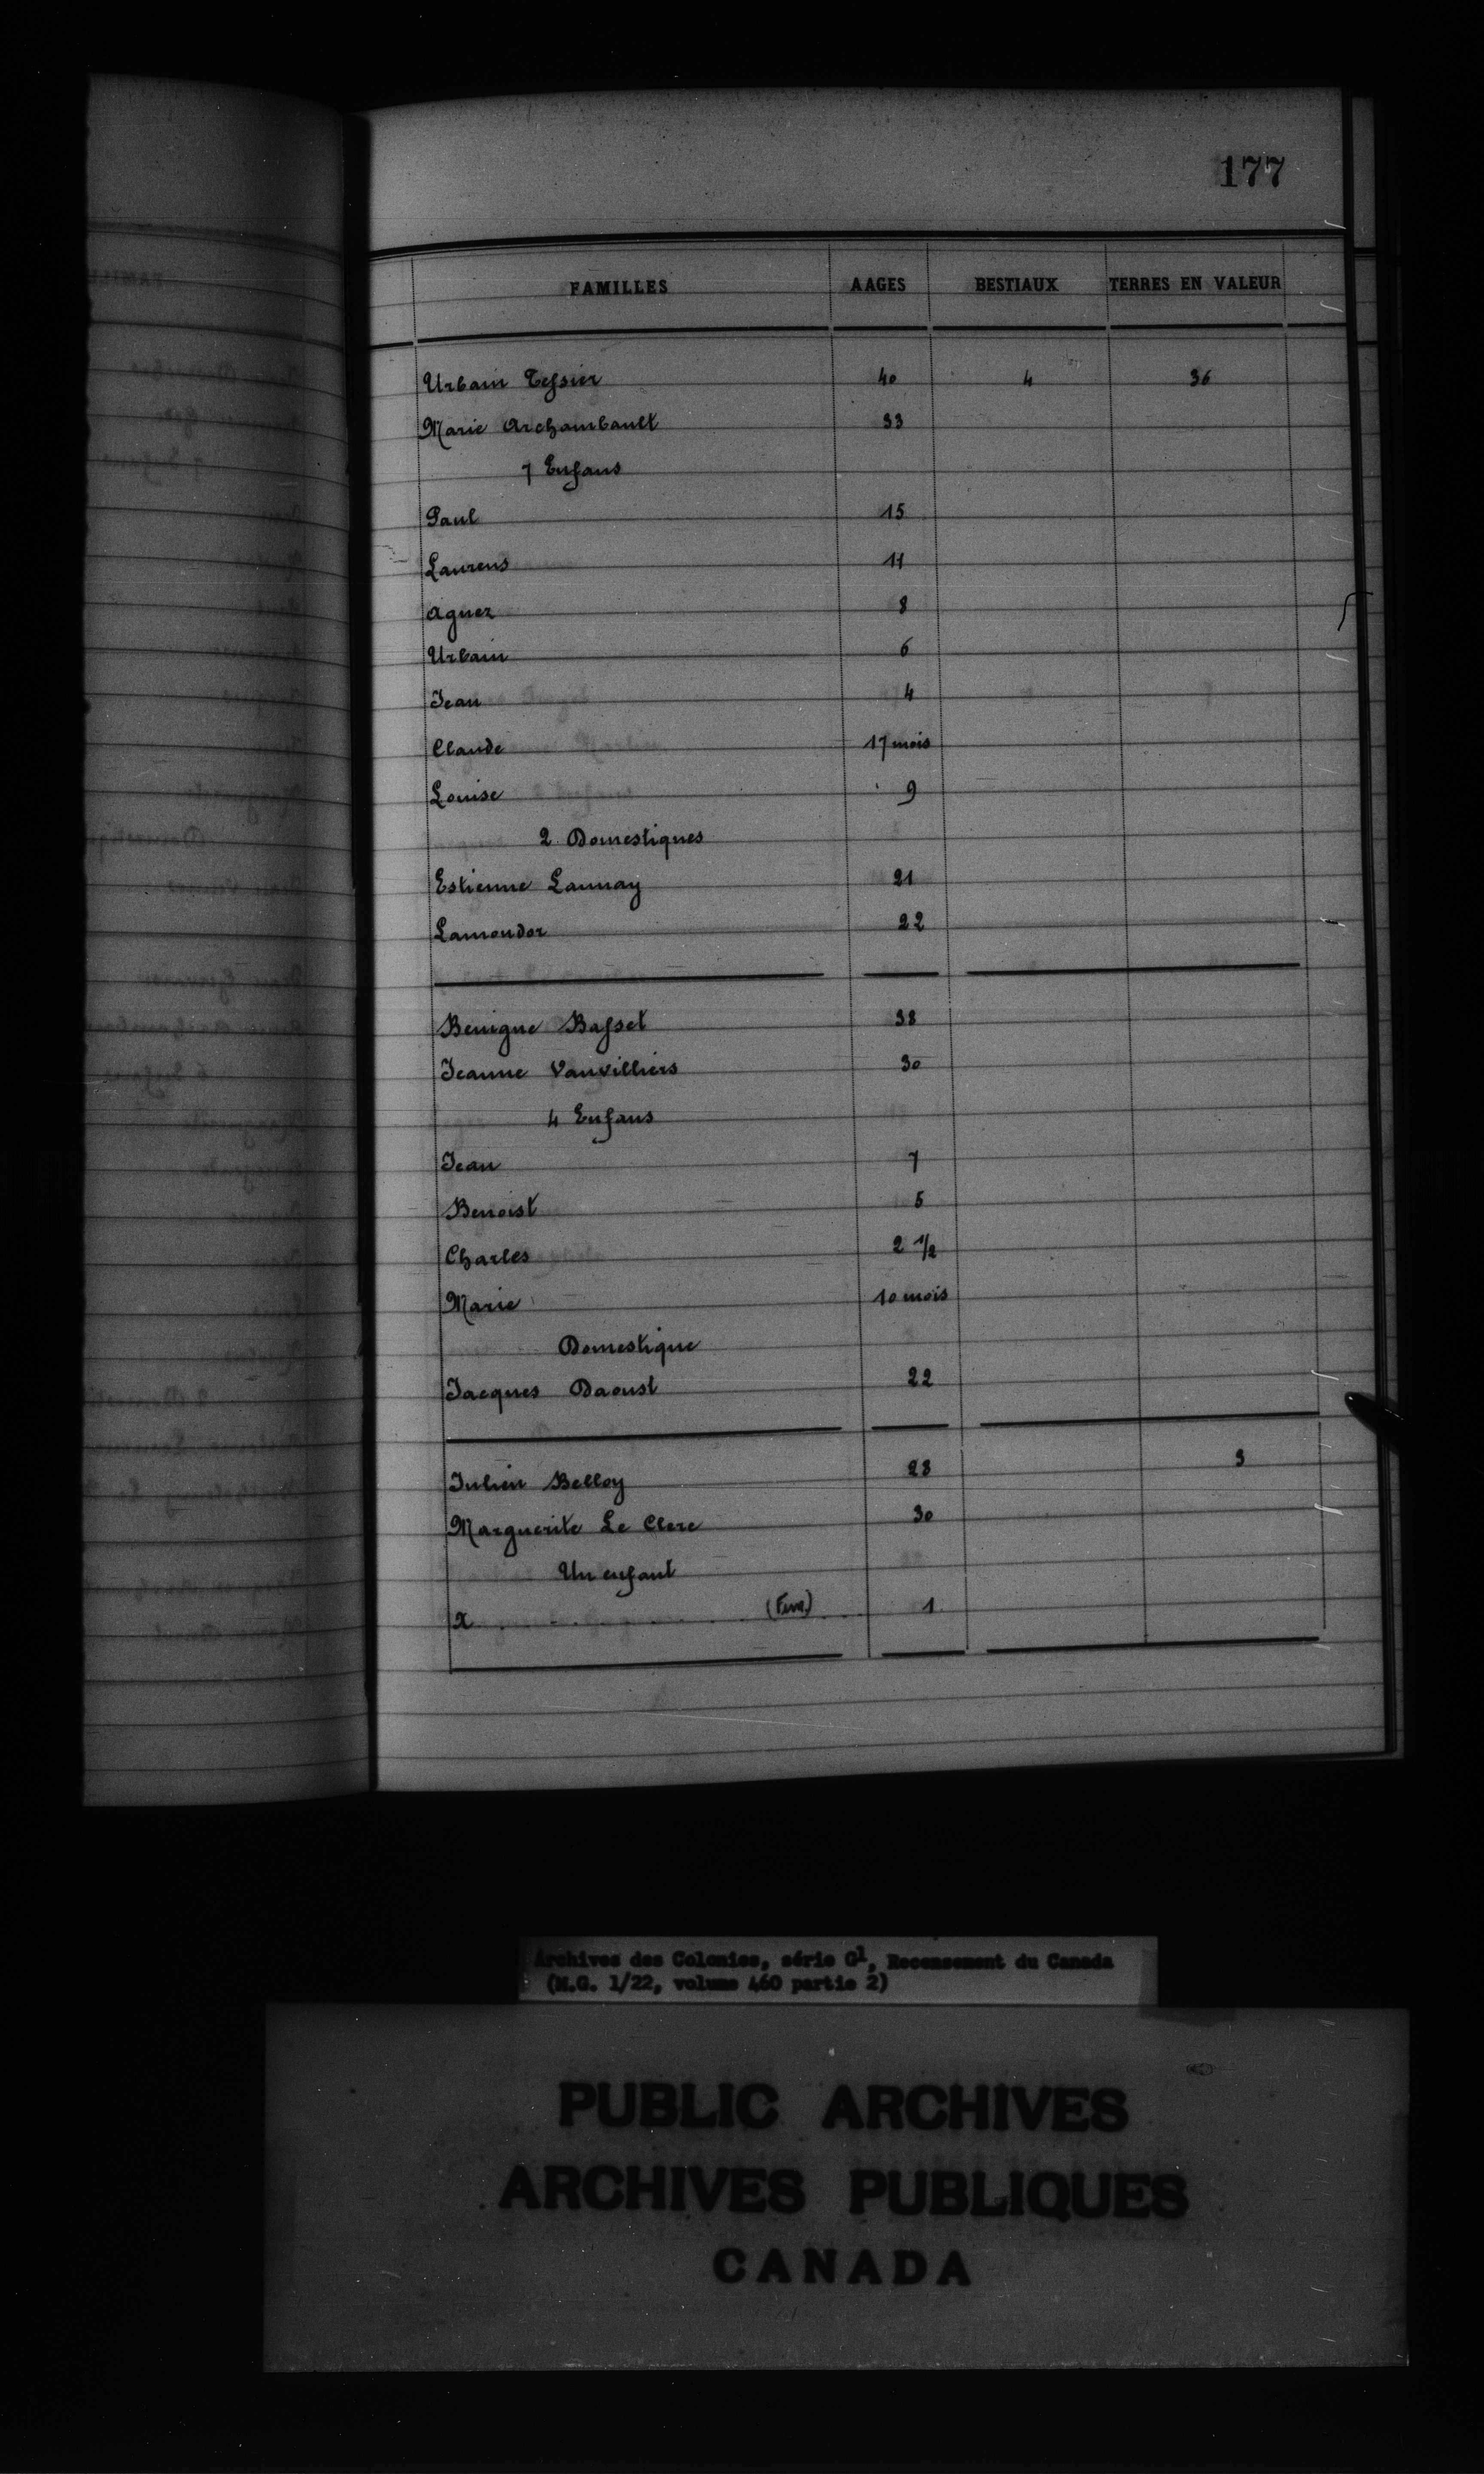 177
FAMILLES AAGES BESTIAUX TERRES EN VALEUR
Urbain Tessier 40 4 36
Marie Archambault 33
7 Enfans
Paul 15
Laurens 11
Agnez 8
Urbain 6
Jean 4
Claude 17 mois
Louise 9
2 Domestiques
Estienne Launay 21
Lamondor 22
Benigne Basset 38
Jeanne Vauvilliers 30
4 Enfans
Jean 7
Benoist 5
Charles 2 1/2
Marie 10 mois
Domestique
Jacques Daoust 22
Julien Belloy 28 3
Marguerite Le Clerc 30
Un enfant
X (Fem.) 1
Archives des Colonies, série G1, Recensement du Canada
(M.G. 1/22, volume 460 partie 2)
PUBLIC ARCHIVES
ARCHIVES PUBLIQUES
CANADA